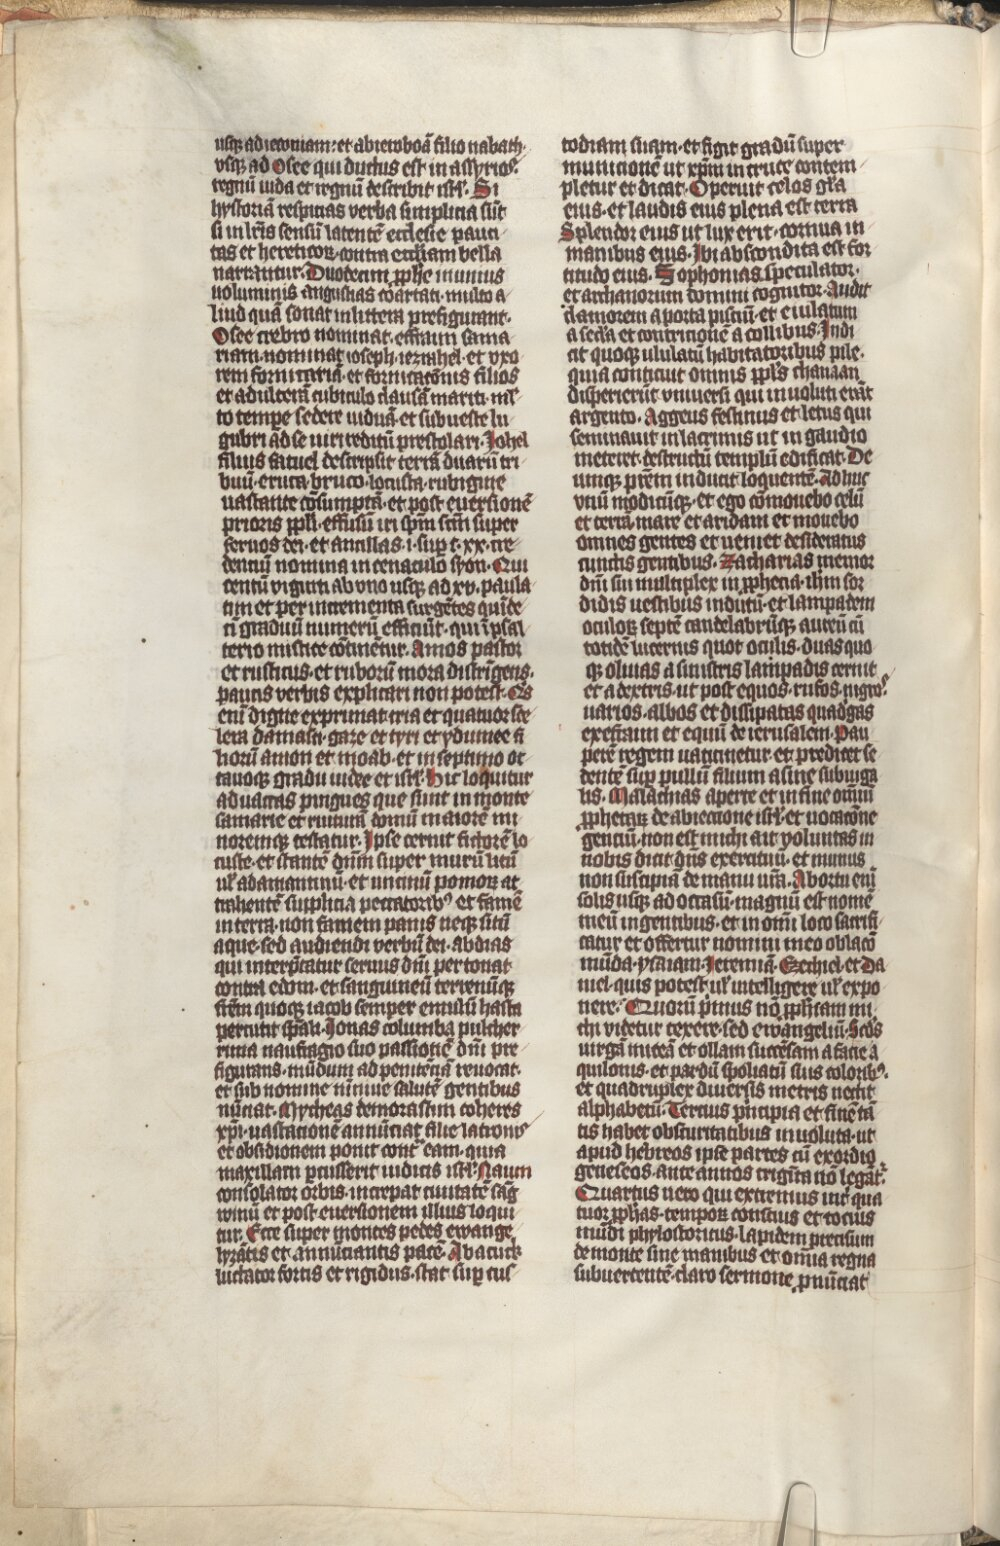 usq; ad ieconiam: et ab ieroboā filio nabath·
vsq; ad Osee qui ductus est in assyrios·
regnū iuda et regnū describit isrl'· Si
hystoriā respicias verba simplicia sūt
si in lr̄is sensū latentē ecclesie pauci
tas et hereticoꝝ contra eccl̄iam bella
narrantur· Duodecim ꝓphe in unius
uoluminis angustias coartati· multo a
liud quā sonat in littera prefigurant·
Osee crebro nominat· effraim sama
riam nominat ioseph· iezrahel· et vxo
rem fornicariā· et fornicatōnis filios
et adulterā cubiculo clausā mariti· ml'
to tempe sedere uiduā et sub ueste lu
gubri ad se uiri reditū prestolari· Johel
filius fatuel descripsit terrā duarū tri
buū· eruca· bruco· locusta· rubigine
uastante cōsumptā· et post euersionē
prioris ppl'i· effusū iri sp̄m sc̄m super
seruos dei· et ancillas· i· sup c·xx· cre
dentiū nomina in cenaculo syon· Qui
centū viginti ab vno usq; ad xv· paula
tim et per incrementa surgētes quīde
ci graduū numerū efficiūt· qui ī psal
terio mistice cōtinētur· Amos pastor
et rusticus· et ruborū mora distrīgens·
paucis verbis explicari non potest· Q's
eni digne exprimat tria et quatuor sce
lera damasci· gaze et tyri et ydumee fi
liorū amon et moab· et in septimo oc
tauoq; gradu iudee et isrl'· Hic loquitur
ad vaccas pingues que sunt in monte
samarie et ruiturā domū maiorē mi
noremq; testatur· Ipse cernit fictorē lo
custe· et stantē dn̄m super murū litū
ul' adamantinū· et uncinū pomoꝝ at
trahentē suplicia peccatorib9 et famē
in terra· non famem panis neq; sitū
aque· sed audiendi verbū dei· abdias
qui interp̄tatur seruus dn̄i pertonat
contra edom· et sanguineū terrenūq;
fr̄em quoq; iacob semper emulū hasta
percutit sp̄ali· Jonas columba pulcher
rima naufragio suo passionē dn̄i pre
figurans· mūdum ad penitētiā reuocat·
et sub nomine niniue salutē gentibus
nūciat· Mycheas de morastim coheres
xp̄i· uastationē annūciat filie latronis
et obsidionem ponit cont' eam· quia
maxillam pcusserit iudicis isrl'· Naum
consolator orbis· increpat ciuitatē sāg
winū et post euersionem illius loqui
tur· Ecce super montes pedes ewange
lyzātis et annūciantis pacē· Abacuck
luctator fortis et rigidus· stat sup cus
todiam suam· et figit gradū super
municionē ut xp̄m in cruce contem
pletur et dicat· Operuit celos gl'a
eius· et laudis eius plena est terra
Splendor eius ut lux erit· cornua in
manibus eius· Ibi abscondita est for
titudo eius· Sophonias speculator·
et archanorum domini cognitor· Audit
clamorem a porta pisciū· et eiulatum
a sc̄da et contricionē a collibus· Indi
cit quoq; ululatū habitatoribus pile·
quia conticuit omnis ppl's chanaan
disperierūt vniuersi qui inuoluti erāt
argento· Aggeus festiuus et letus qui
seminauit in lacrimis ut in gaudio
meteret· destructū templū edificat· De
umq; pr̄em inducit loquentē· Adhuc
vnū modicūq;· et ego cōmouebo celū
et terrā· mare et aridam et mouebo
omnes gentes et ueniet desideratus
cunctis gentibus· Zacharias memor
dn̄i sui multiplex in ꝓphecia· ih̄m sor
didis uestibus indutū· et lampadem
oculoꝝ septē candelabrūq; aureū cū
totidē lucernis quot oculis· duas quo
q; oliuas a sinistris lampadis cernit
et a dextris· ut post equos· rufos· nigros·
uarios· albos et dissipatas quad'gas
ex effraim et equū de ierusalem· Pau
perē regem uaticinetur· et predicet se
dentē sup pullū filium asine subiuga
lis· Malachias aperte et in fine omniū
ꝓphetaꝝ de abiectione isrl'· et uocatōne
genciū· non est michi ait voluntas in
uobis dicit dn̄s exercituū· et munus
non suscipiā de manu ur̄a· Ab ortu eni
solis usq; ad occasū· magnū est nomē
meū in gentibus· et in om̄i loco sacrifi
catur et offertur nomini meo oblacō
mūda· ysaiam· Jeremiā· Ezechiel· et Da
niel· quis potest· ul' intelligere ul' expo
nere· Quorū p'mus nō ꝓph'iam mi
chi videtur texere· sed ewangeliū· Sc̄ds
uirgā nuceā et ollam succēsam a facie a
quilonis· et pardū spoliatū suis colorib9·
et quadruplex diuersis metris nectit
alphabetū· Tercius p'ncipia et finē tā
tis habet obscuritatibus inuoluta· ut
apud hebreos ipse partes cū exordio
geneseos· ante annos triginta nō legāt'·
Quartus uero qui extremus int' qua
tuor ꝓph'as· tempoꝝ conscius et tocius
mūdi phylostoricus· lapidem precisum
de monte sine manibus et om̄ia regna
subuertentē· claro sermone ꝓnūciat